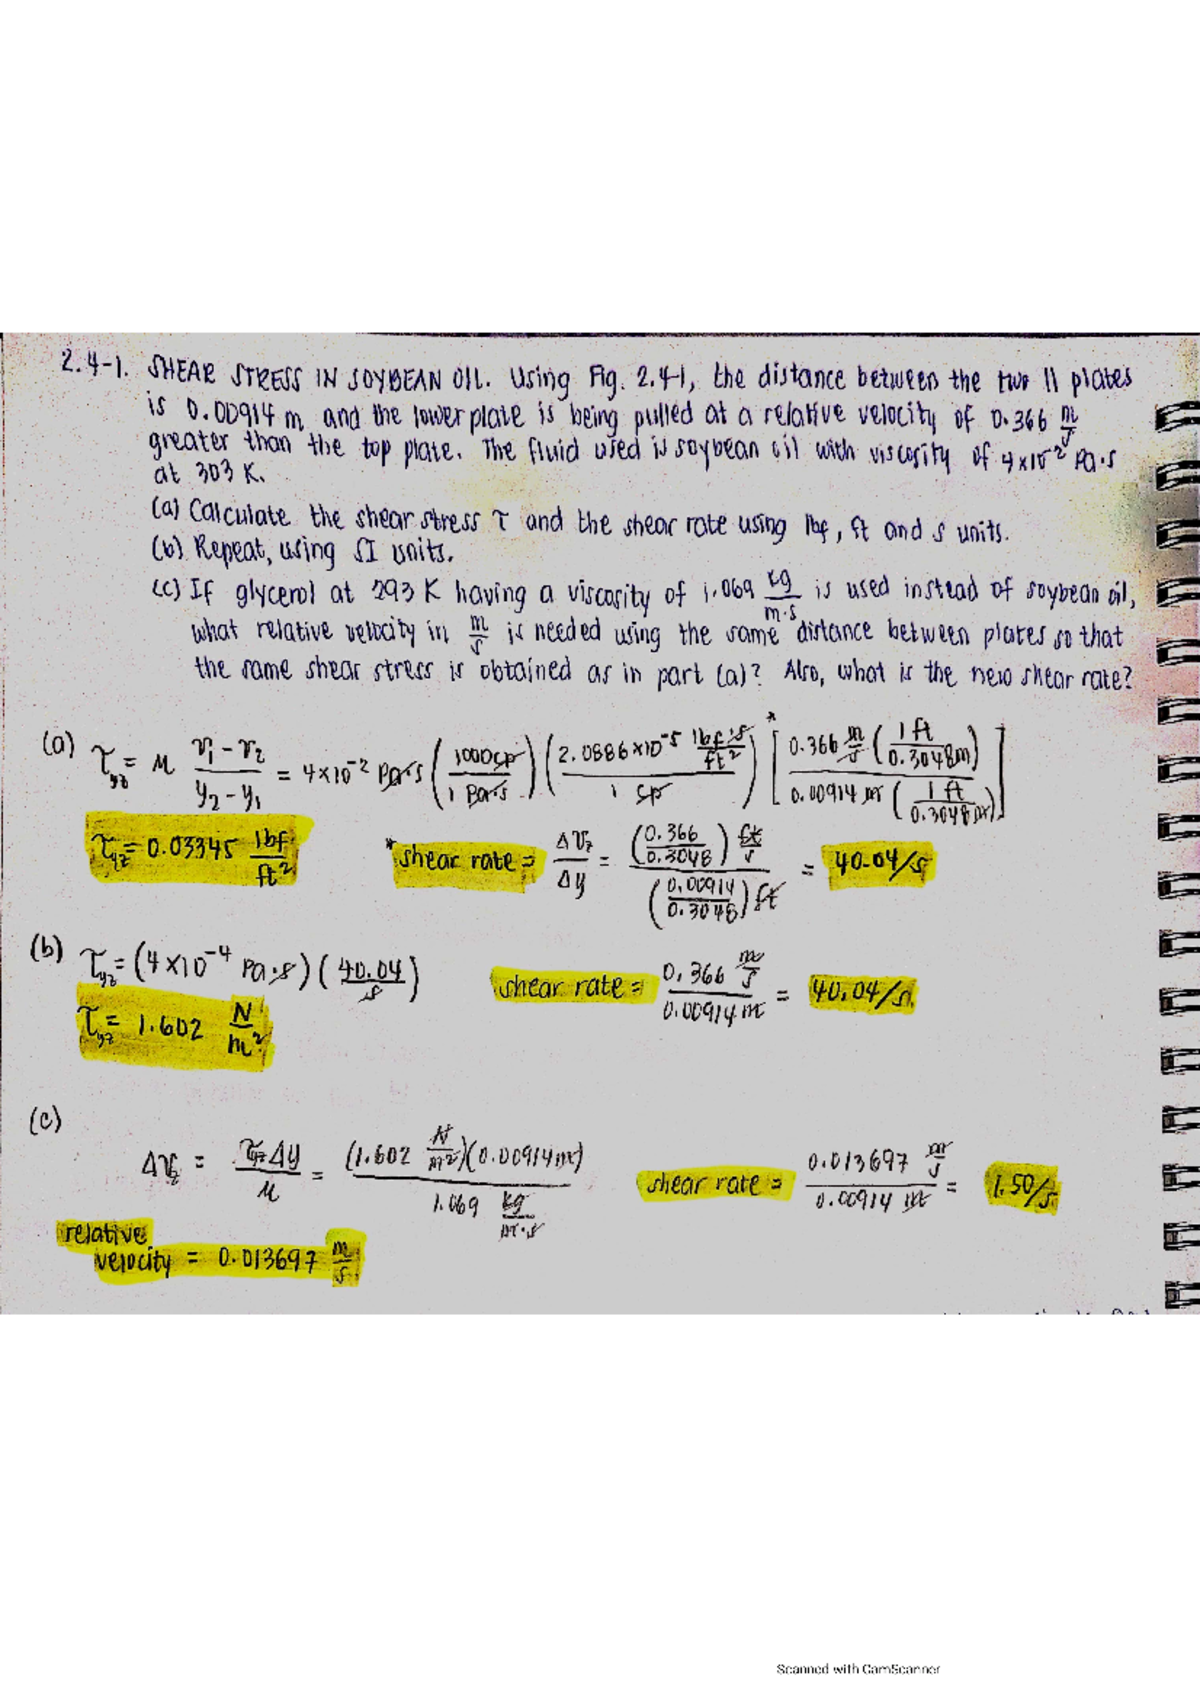 2.4-1. SHEAR STRESS IN SOYBEAN OIL. Using Fig. 2.4-1, the distance between the two || plates
is 0.00914 m and the lower plate is being pulled at a relative velocity of 0.366 m/s
greater than the top plate. The fluid used is soybean oil with viscosity of 4×10⁻² Pa·s
at 303 K.
(a) Calculate the shear stress τ and the shear rate using lbf, ft and s units.
(b) Repeat, using SI units.
(c) If glycerol at 293 K having a viscosity of 1.069 kg/m·s is used instead of soybean oil,
what relative velocity in m/s is needed using the same distance between plates so that
the same shear stress is obtained as in part (a)? Also, what is the new shear rate?
(a) τyz = μ (v1 - v2)/(y2 - y1) = 4×10⁻² Pa·s (1000 cp / 1 Pa·s) (2.0886×10⁻⁵ lbf·s/ft² / 1 cp) * [0.366 m/s (1 ft / 0.3048 m) / 0.00914 m (1 ft / 0.3048 m)]
τyz = 0.03345 lbf/ft² *shear rate = Δvz/Δy = (0.366/0.3048) ft/s / (0.00914/0.3048) ft = 40.04/s
(b) τyz = (4×10⁻⁴ Pa·s)(40.04/s) shear rate = 0.366 m/s / 0.00914 m = 40.04/s
τyz = 1.602 N/m²
(c) Δvz = τyz Δy / μ = (1.602 N/m²)(0.00914 m) / 1.069 kg/m·s shear rate = 0.013697 m/s / 0.00914 m = 1.50/s
relative
velocity = 0.013697 m/s
Scanned with CamScanner